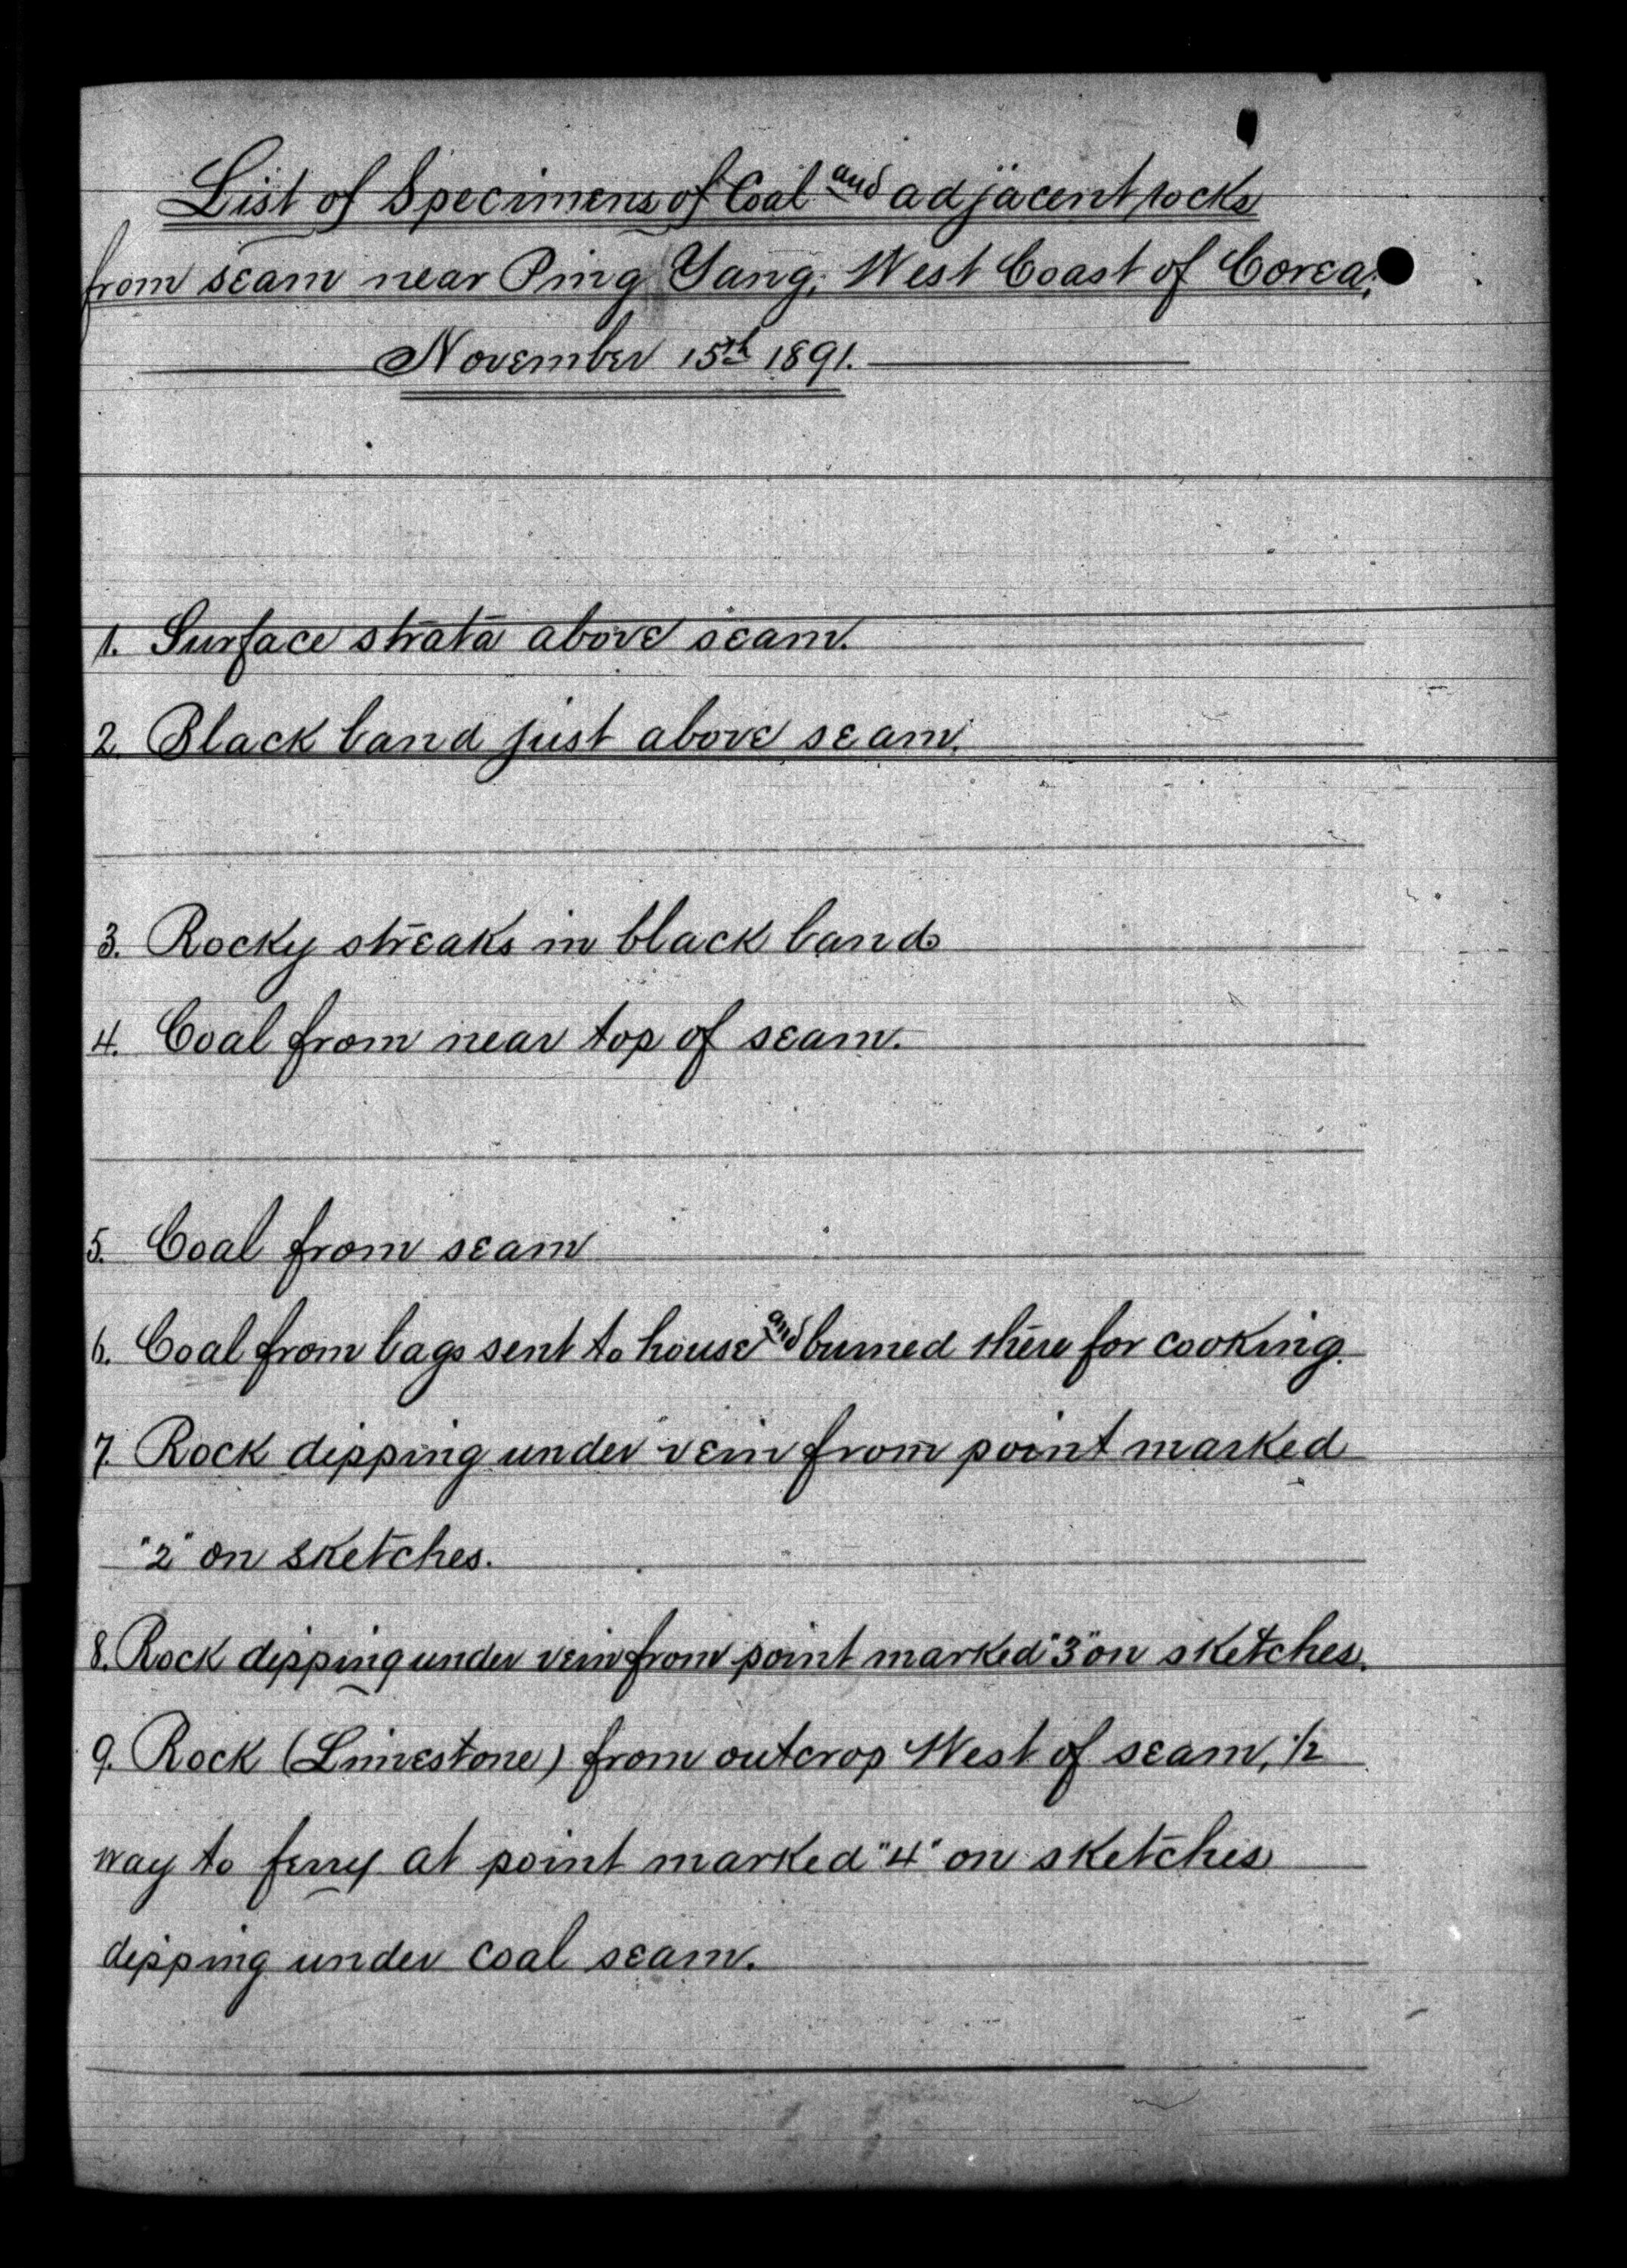 List of Specimens of Coal and adjacent rocks
from seam near Ping Yang, West Coast of Corea,
November 15th 1891.
1. Surface strata above seam.
2. Black band just above seam.
3. Rocky streaks in black band
4. Coal from near top of seam.
5. Coal from seam
6. Coal from bags sent to house and burned there for cooking.
7. Rock dipping under vein from point marked
"2" on sketches.
8. Rock dipping under vein from point marked "3" on sketches.
9. Rock (Limestone) from outcrop West of seam, 1/2
way to ferry at point marked "4" on sketches
dipping under coal seam.